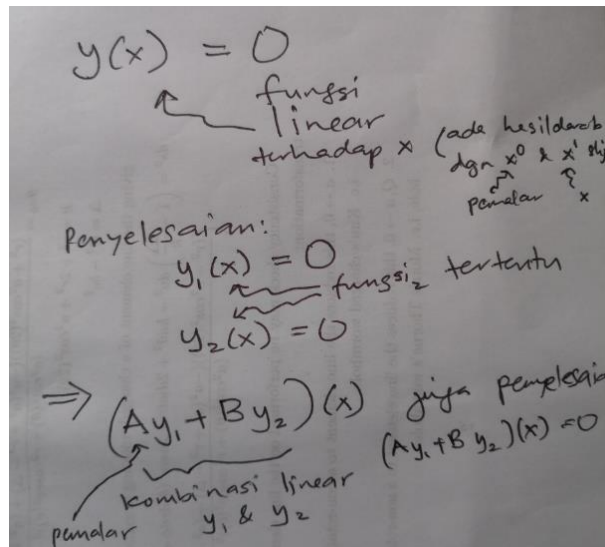 y(x) = 0
fungsi
linear
terhadap x (ada hasildarab
dgn x⁰ & x¹ shj
pemalar x
Penyelesaian:
y₁(x) = 0
fungsi₂ tertentu
y₂(x) = 0
⇒ (Ay₁ + By₂)(x) juga penyelesaia
(Ay₁ + By₂)(x) = 0
pemalar
kombinasi linear
y₁ & y₂